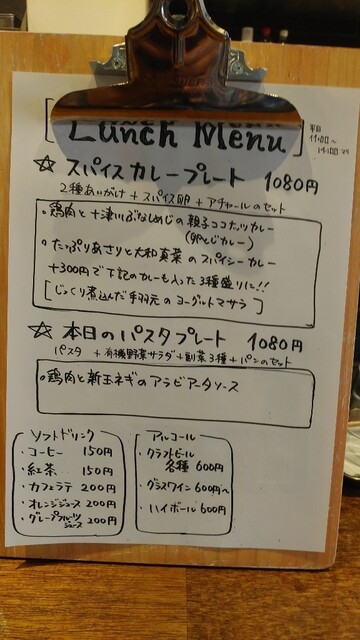 [ Lunch Menu ]
平日
11:00〜
14:00
☆ スパイスカレープレート 1080円
2種あいがけ + スパイス卵 + アチャールのセット
・鶏肉と十津川ぶなしめじの親子ココナッツカレー
(卵とじカレー)
・たっぷりあさりと大和真菜のスパイシーカレー
+300円で下記のカレーも入った3種盛りに!!
[じっくり煮込んだ手羽元のヨーグルトマサラ]
☆ 本日のパスタプレート 1080円
パスタ +有機野菜サラダ+副菜3種+パンのセット
・鶏肉と新玉ネギのアラビアータソース
ソフトドリンク
・コーヒー 150円
・紅茶 150円
・カフェラテ 200円
・オレンジジュース 200円
・グレープフルーツ
ジュース 200円
アルコール
・クラフトビール
各種 600円
・グラスワイン 600円〜
・ハイボール 600円